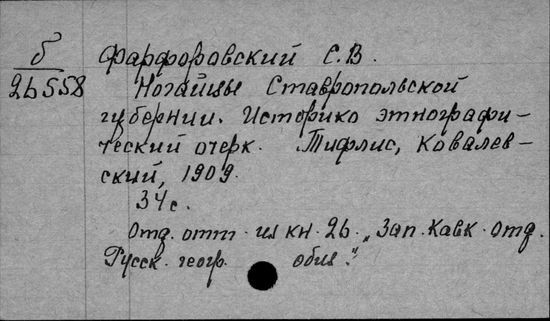 б Фарфоровский С.В.
26558 Ногайцы Ставропольской
губернии. Историко этнографи-
ческий очерк. Тифлис, Ковалев-
ский, 1909.
34 с.
Отд. отт. из кн. 26. „Зап. Кавк. отд.
Русск. геогр. общ."